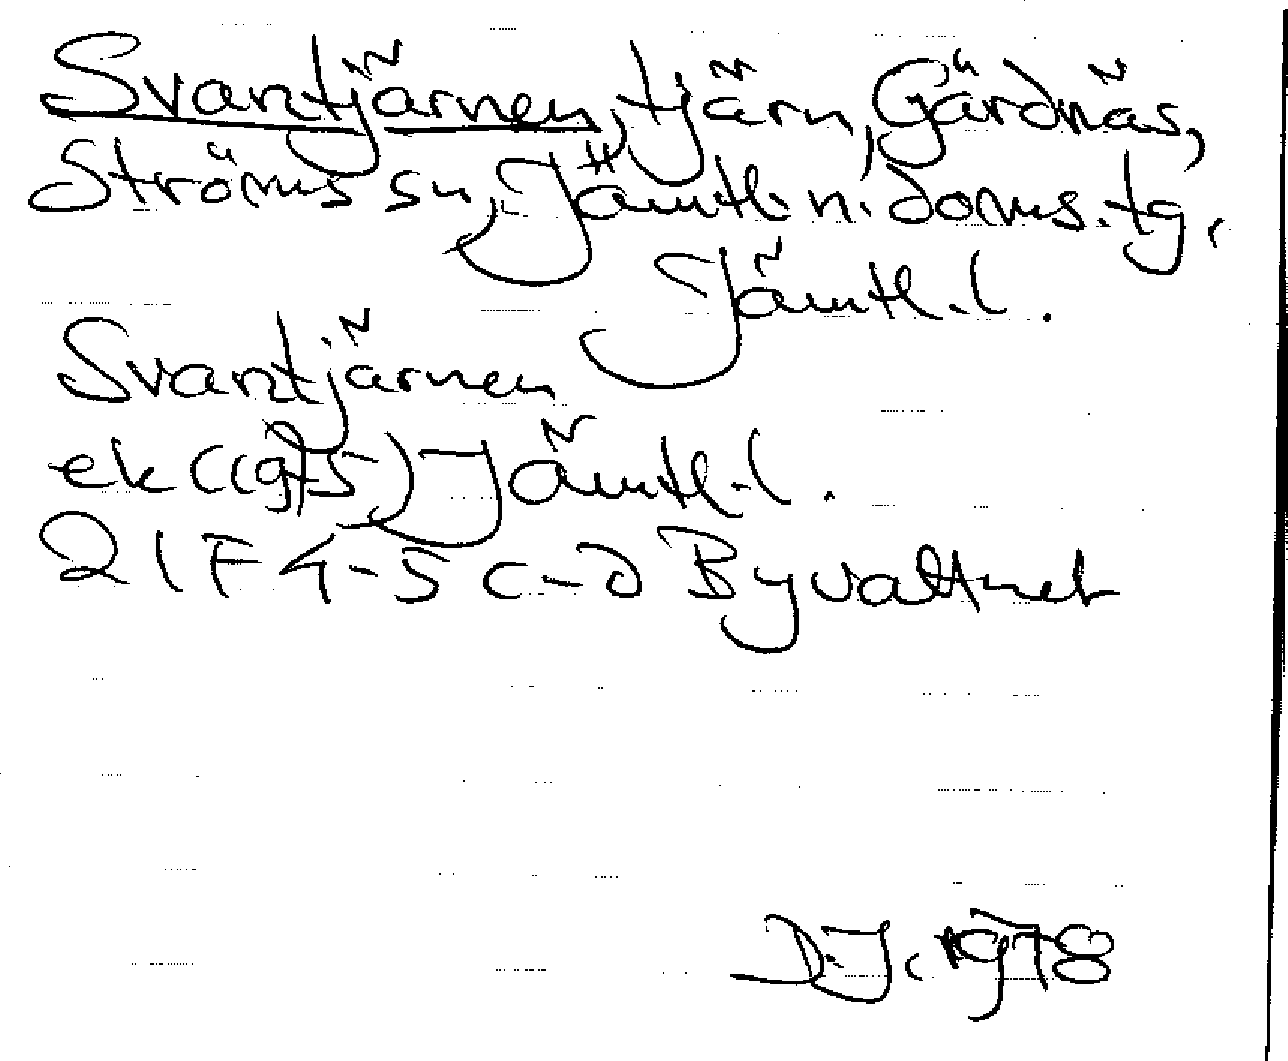 Svartjärnen, tjärn, Gärdnäs,
Ströms sn, Jämtl. n. doms. tg,
Jämtl. l.
Svartjärnen
ek (1975) Jämtl. l.
21F 4-5 c-d Byvattnet
D.J. 1978